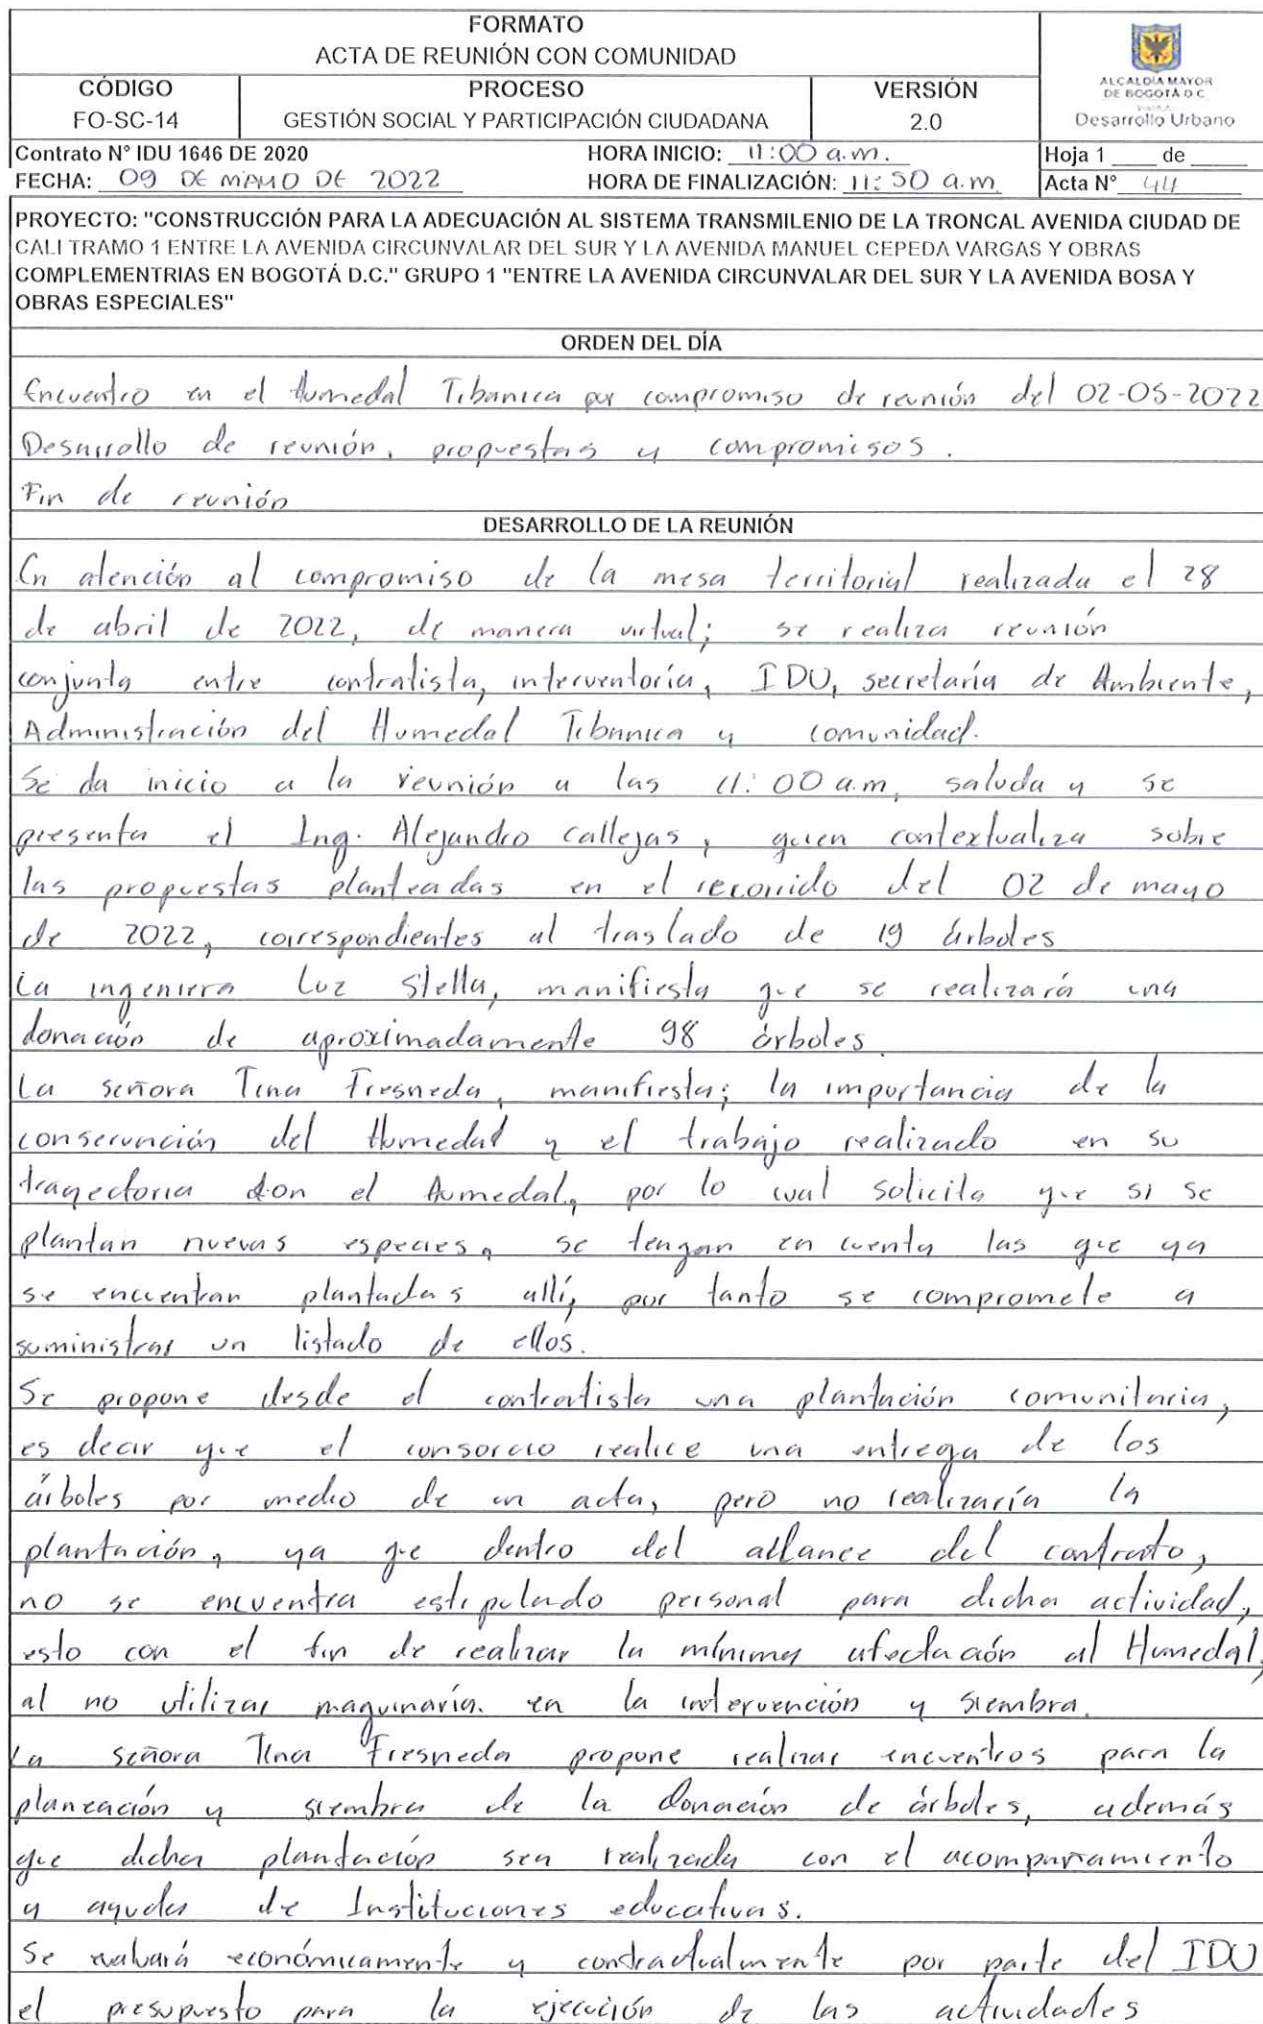 FORMATO
ACTA DE REUNIÓN CON COMUNIDAD
CÓDIGO
FO-SC-14
PROCESO
GESTIÓN SOCIAL Y PARTICIPACIÓN CIUDADANA
VERSIÓN
2.0
ALCALDÍA MAYOR
DE BOGOTÁ D.C.
Desarrollo Urbano
Contrato N° IDU 1646 DE 2020
HORA INICIO: 11:00 a.m.
Hoja 1 ____ de ____
FECHA: 09 DE MAYO DE 2022
HORA DE FINALIZACIÓN: 11:50 a.m
Acta N° 44
PROYECTO: "CONSTRUCCIÓN PARA LA ADECUACIÓN AL SISTEMA TRANSMILENIO DE LA TRONCAL AVENIDA CIUDAD DE
CALI TRAMO 1 ENTRE LA AVENIDA CIRCUNVALAR DEL SUR Y LA AVENIDA MANUEL CEPEDA VARGAS Y OBRAS
COMPLEMENTRIAS EN BOGOTÁ D.C." GRUPO 1 "ENTRE LA AVENIDA CIRCUNVALAR DEL SUR Y LA AVENIDA BOSA Y
OBRAS ESPECIALES"
ORDEN DEL DÍA
Encuentro en el Humedal Tibanica por compromiso de reunión del 02-05-2022
Desarrollo de reunión, propuestas y compromisos.
Fin de reunión
DESARROLLO DE LA REUNIÓN
En atención al compromiso de la mesa territorial realizada el 28
de abril de 2022, de manera virtual; se realiza reunión
conjunta entre contratista, interventoría, IDU, secretaría de Ambiente,
Administración del Humedal Tibanica y comunidad.
Se da inicio a la reunión a las 11:00 a.m, saluda y se
presenta el Ing. Alejandro Callejas, quien contextualiza sobre
las propuestas planteadas en el recorrido del 02 de mayo
de 2022, correspondientes al traslado de 19 árboles
La ingeniera Luz Stella, manifiesta que se realizará una
donación de aproximadamente 98 árboles.
La señora Tina Fresneda, manifiesta; la importancia de la
conservación del Humedal y el trabajo realizado en su
trayectoria con el Humedal, por lo cual solicita que si se
plantan nuevas especies, se tengan en cuenta las que ya
se encuentran plantadas allí, por tanto se compromete a
suministrar un listado de ellos.
Se propone desde el contratista una plantación comunitaria,
es decir que el consorcio realice una entrega de los
árboles por medio de un acta, pero no realizaría la
plantación, ya que dentro del alcance del contrato,
no se encuentra estipulado personal para dicha actividad,
esto con el fin de realizar la mínima afectación al Humedal,
al no utilizar maquinaria. en la intervención y siembra.
La señora Tina Fresneda propone realizar encuentros para la
planeación y siembra de la donación de árboles, además
que dicha plantación sea realizada con el acompañamiento
y ayuda de Instituciones educativas.
Se evaluará económicamente y contractualmente por parte del IDU
el presupuesto para la ejecución de las actividades